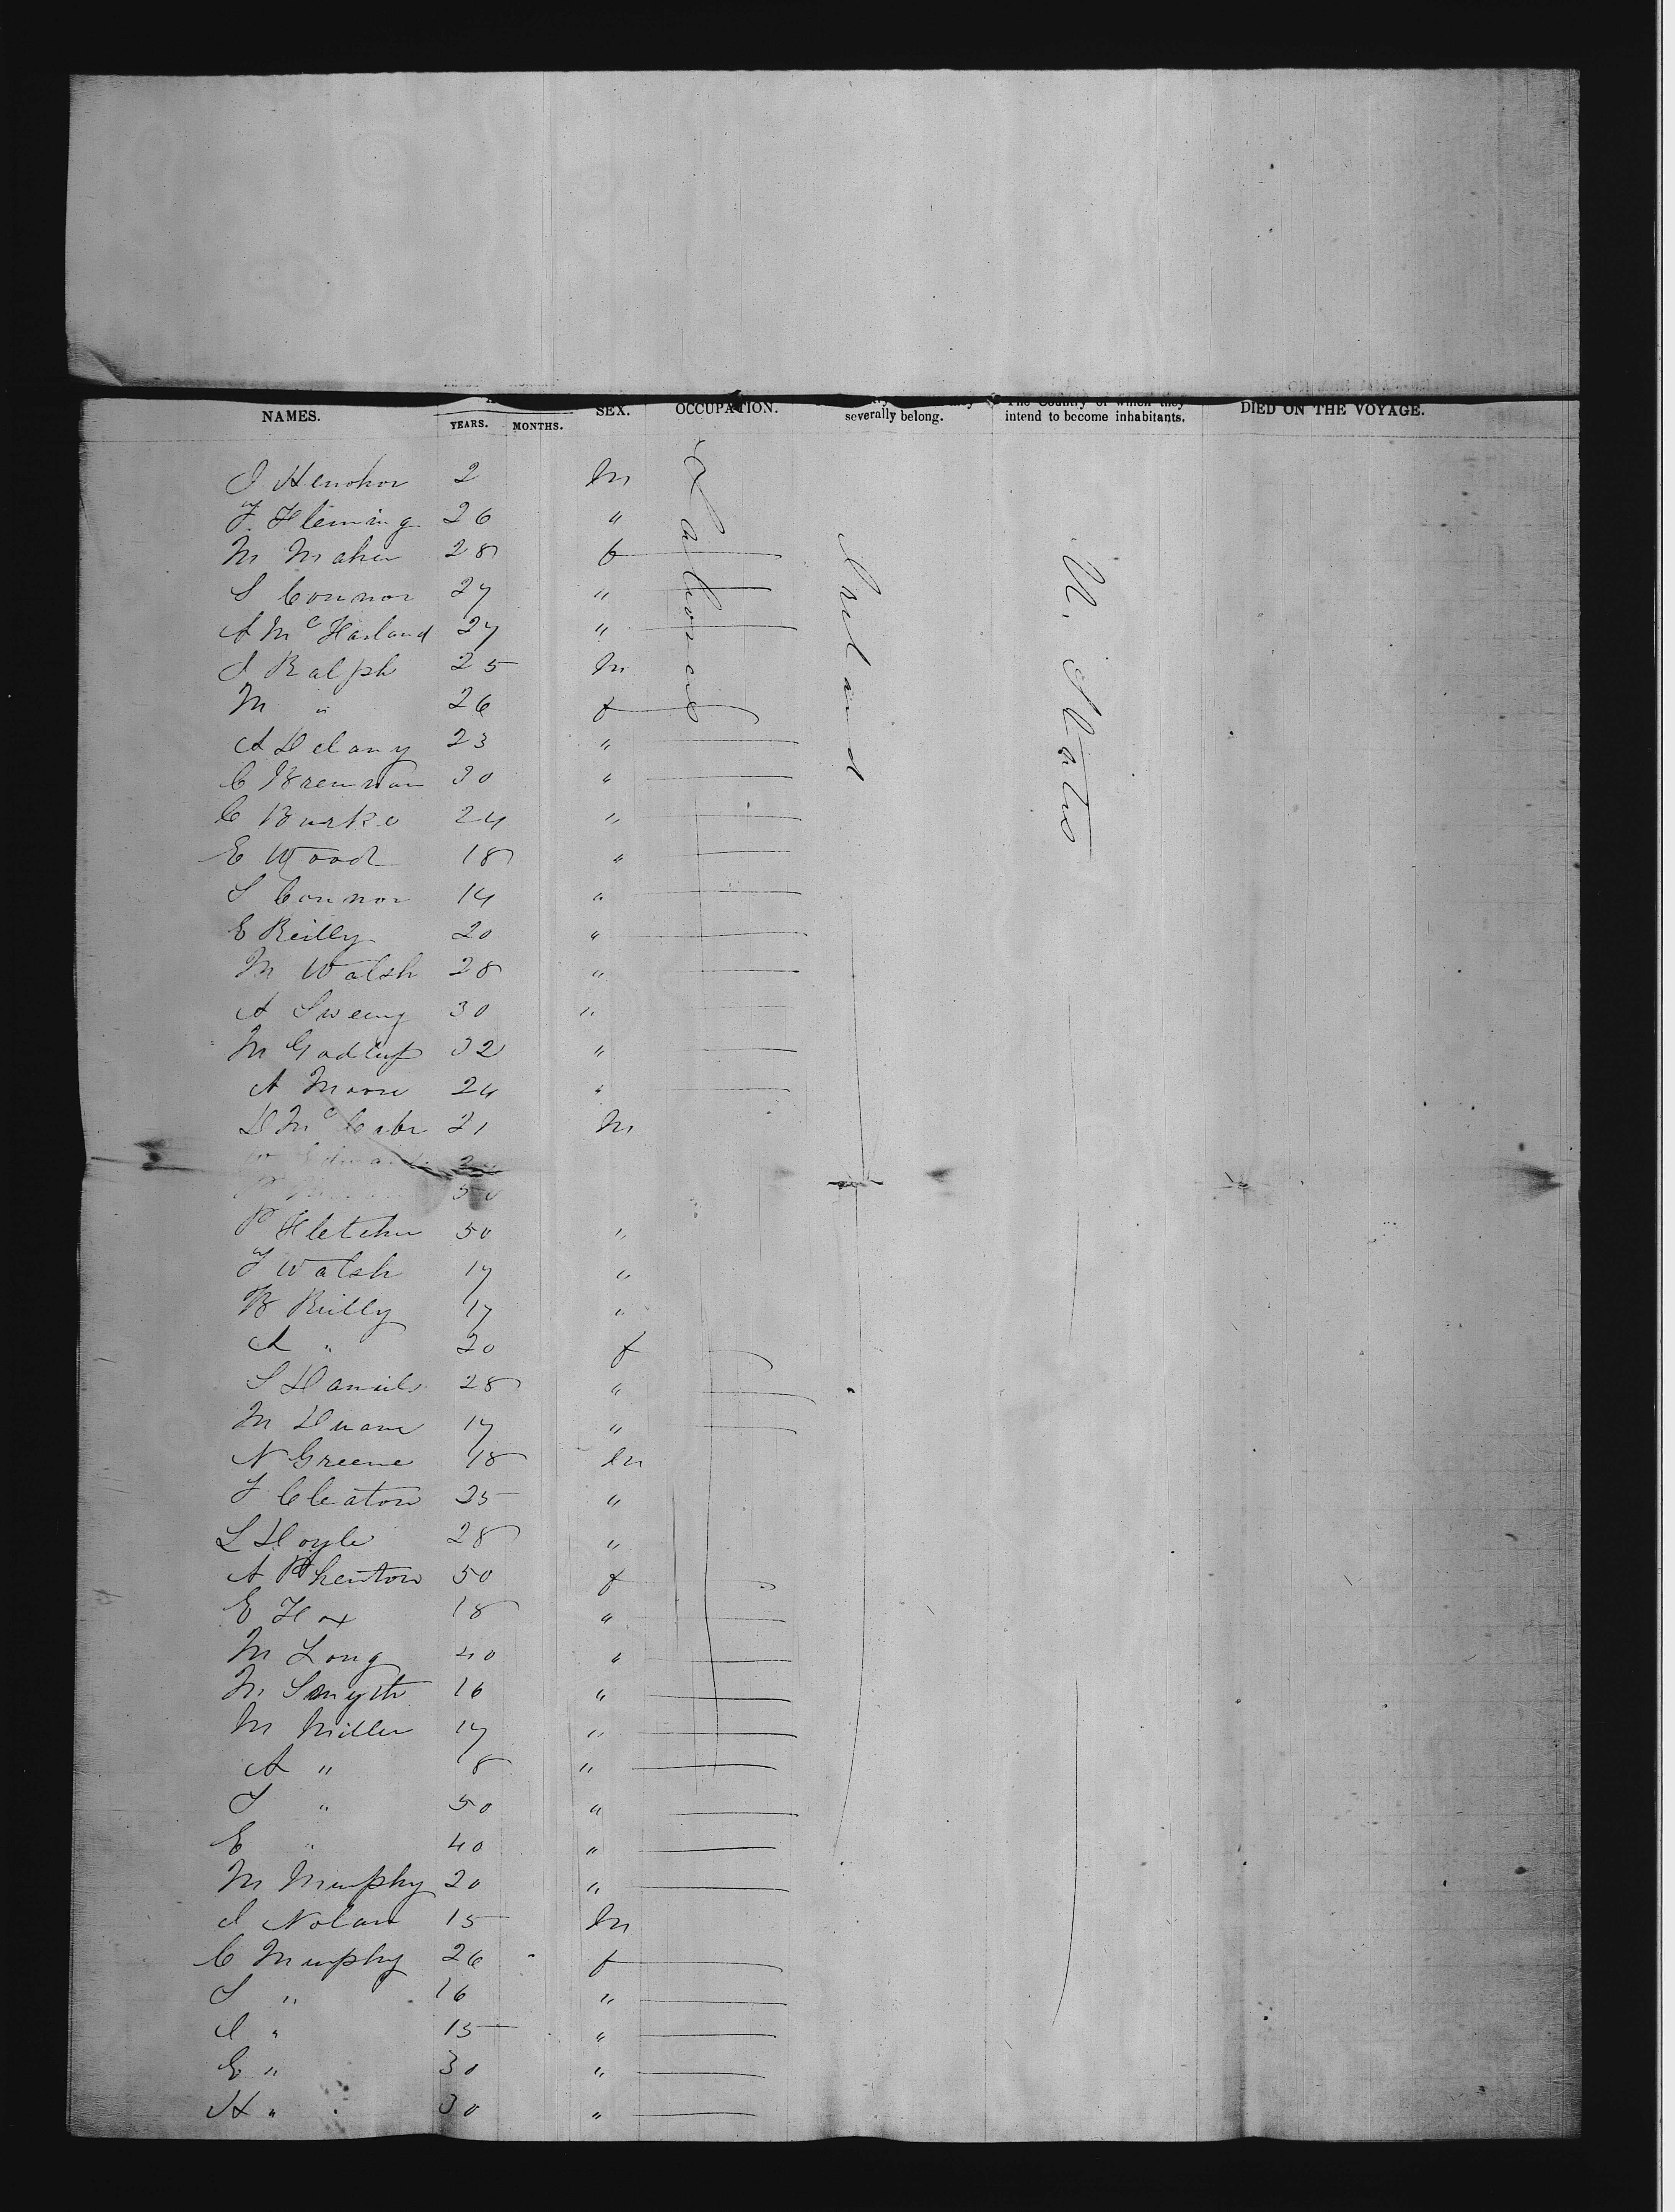 NAMES. YEARS. MONTHS. SEX. OCCUPATION. severally belong. The Country of which they intend to become inhabitants. DIED ON THE VOYAGE.
Laborers
Ireland
U. States
J 2 m
F. Fleming 26 "
M Maher 28 f
S Connor 27 "
A McFarland 27 "
J Ralph 25 m
M " 26 f
A Delany 23 "
C Brennan 30 "
C Burke 24 "
E Wood 18 "
S Connor 14 "
E Reilly 20 "
M Walsh 28 "
A Sweeny 30 "
M 32 "
A Moore 24 "
D McCabe 21 m
50
P Fletcher 50 "
F Walsh 17 "
B Reilly 17 "
A " 20 f
S Daniels 28 "
M Duane 17 "
N Greene 18 m
F Cleaton 25 "
L Doyle 28 "
A Phenton 50 f
E Fox 18 "
M Long 40 "
M Smyth 16 "
M Miller 17 "
A " 18 "
S " 50 "
E " 40 "
M Murphy 20 "
J Nolan 15 m
C Murphy 26 f
S " 16 "
J " 15 "
E " 30 "
H " 30 "